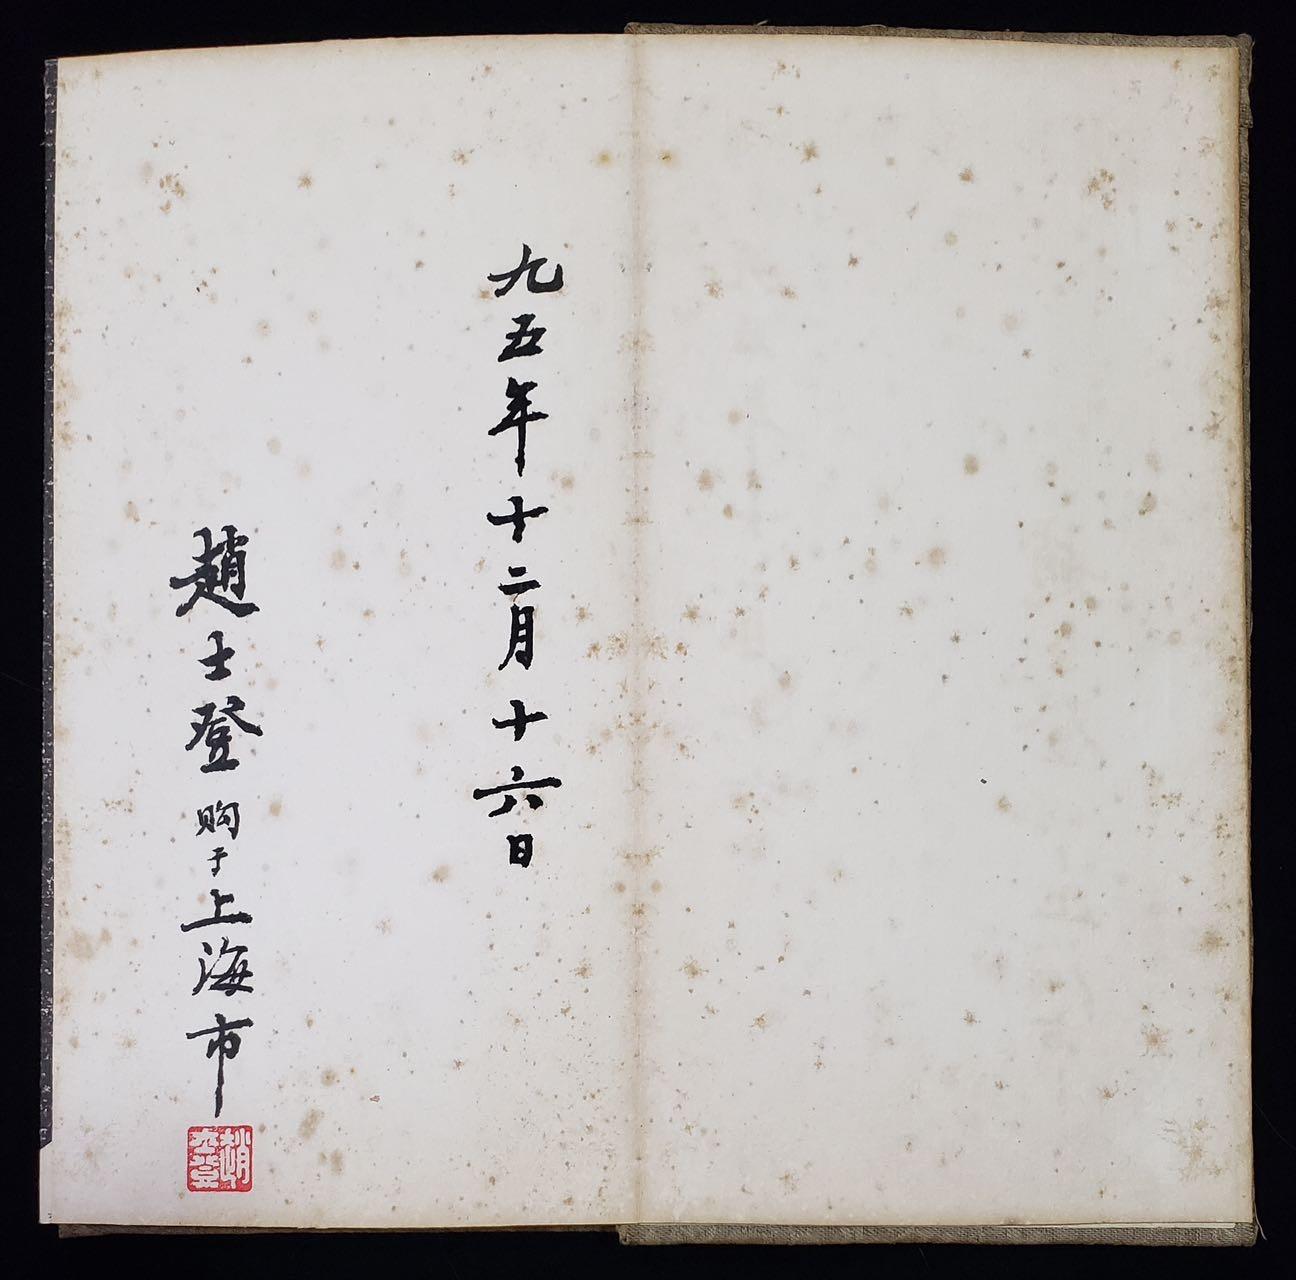 九五年十二月十六日
趙士登购于上海市
趙
登